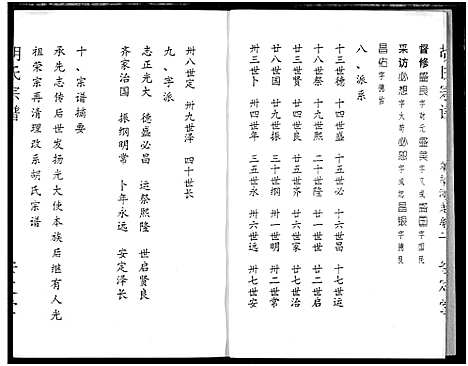 胡氏宗谱
安定堂
督修 盛良 字财元 盛美 字又成 昌国 字国民
采访 必想 字大奇 必恕 字成忠 昌银 字德良
昌佑 字德吉
八、派系
十三世德 十四世盛 十五世必 十六世昌 十七世运
十八世祭 十九世熙 二十世隆 廿一世世 廿二世启
廿三世贤 廿四世良 廿五世齐 廿六世家 廿七世治
廿八世国 廿九世振 卅世纲 卅一世明 卅二世常
卅三世卜 卅四世年 卅五世永 卅六世远 卅七世安
卅八世定 卅九世泽 四十世长
九、字派
志正光大 德盛必昌 运祭熙隆 世启贤良
齐家治国 振纲明常 卜年永远 安定泽长
十、宗谱摘要
承先志传后世发扬光大使本族后继有人光
祖荣宗再清理改系胡氏宗谱
胡氏宗谱
安定堂